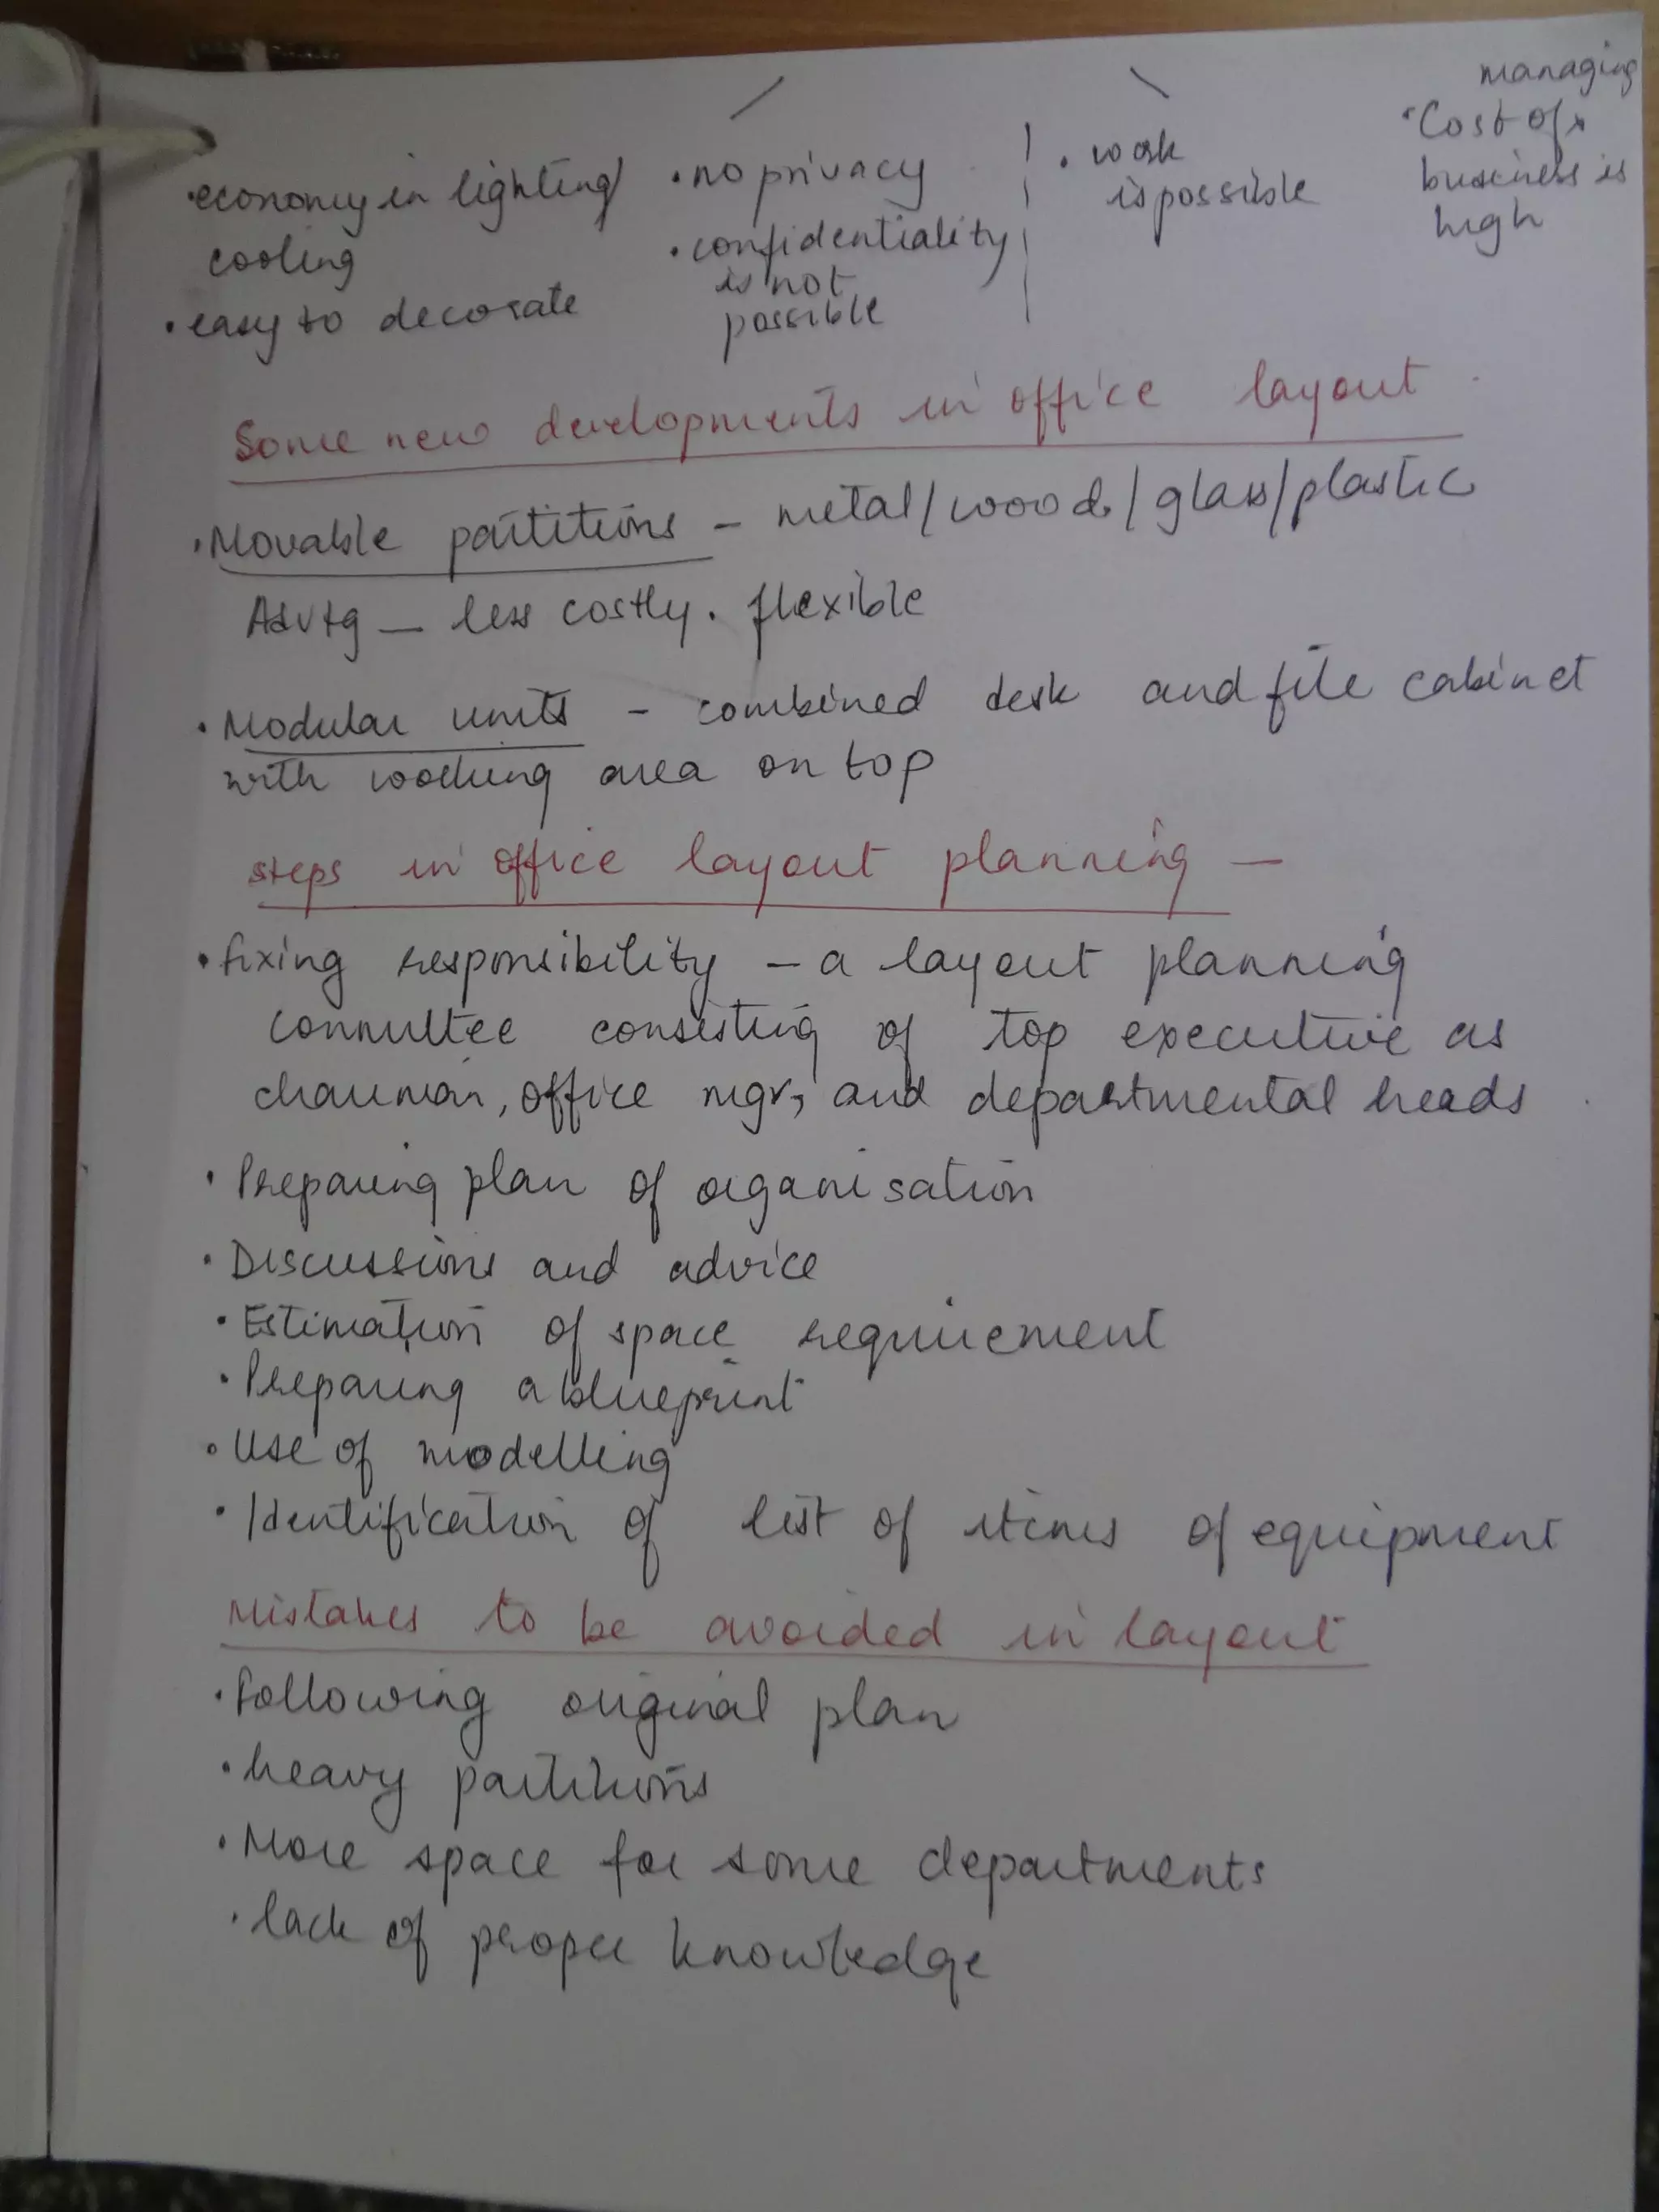 • economy in lighting/
cooling
• easy to decorate
• no privacy
• confidentiality
is not
possible
• work
is possible
managing
• Cost of x
business is
high
Some new developments in office layout
• Movable partitions - metal/wood/glass/plastic
Advtg - less costly. flexible
• Modular units - combined desk and file cabinet
with working area on top
steps in office layout planning -
• fixing responsibility - a layout planning
committee consisting of top executive as
chairman, office mgr, and departmental heads
• Preparing plan of organisation
• Discussions and advice
• Estimation of space requirement
• Preparing a blueprint
• Use of modelling
• Identification of list of items of equipment
Mistakes to be avoided in layout
• Following original plan
• heavy partitions
• More space for some departments
• lack of proper knowledge